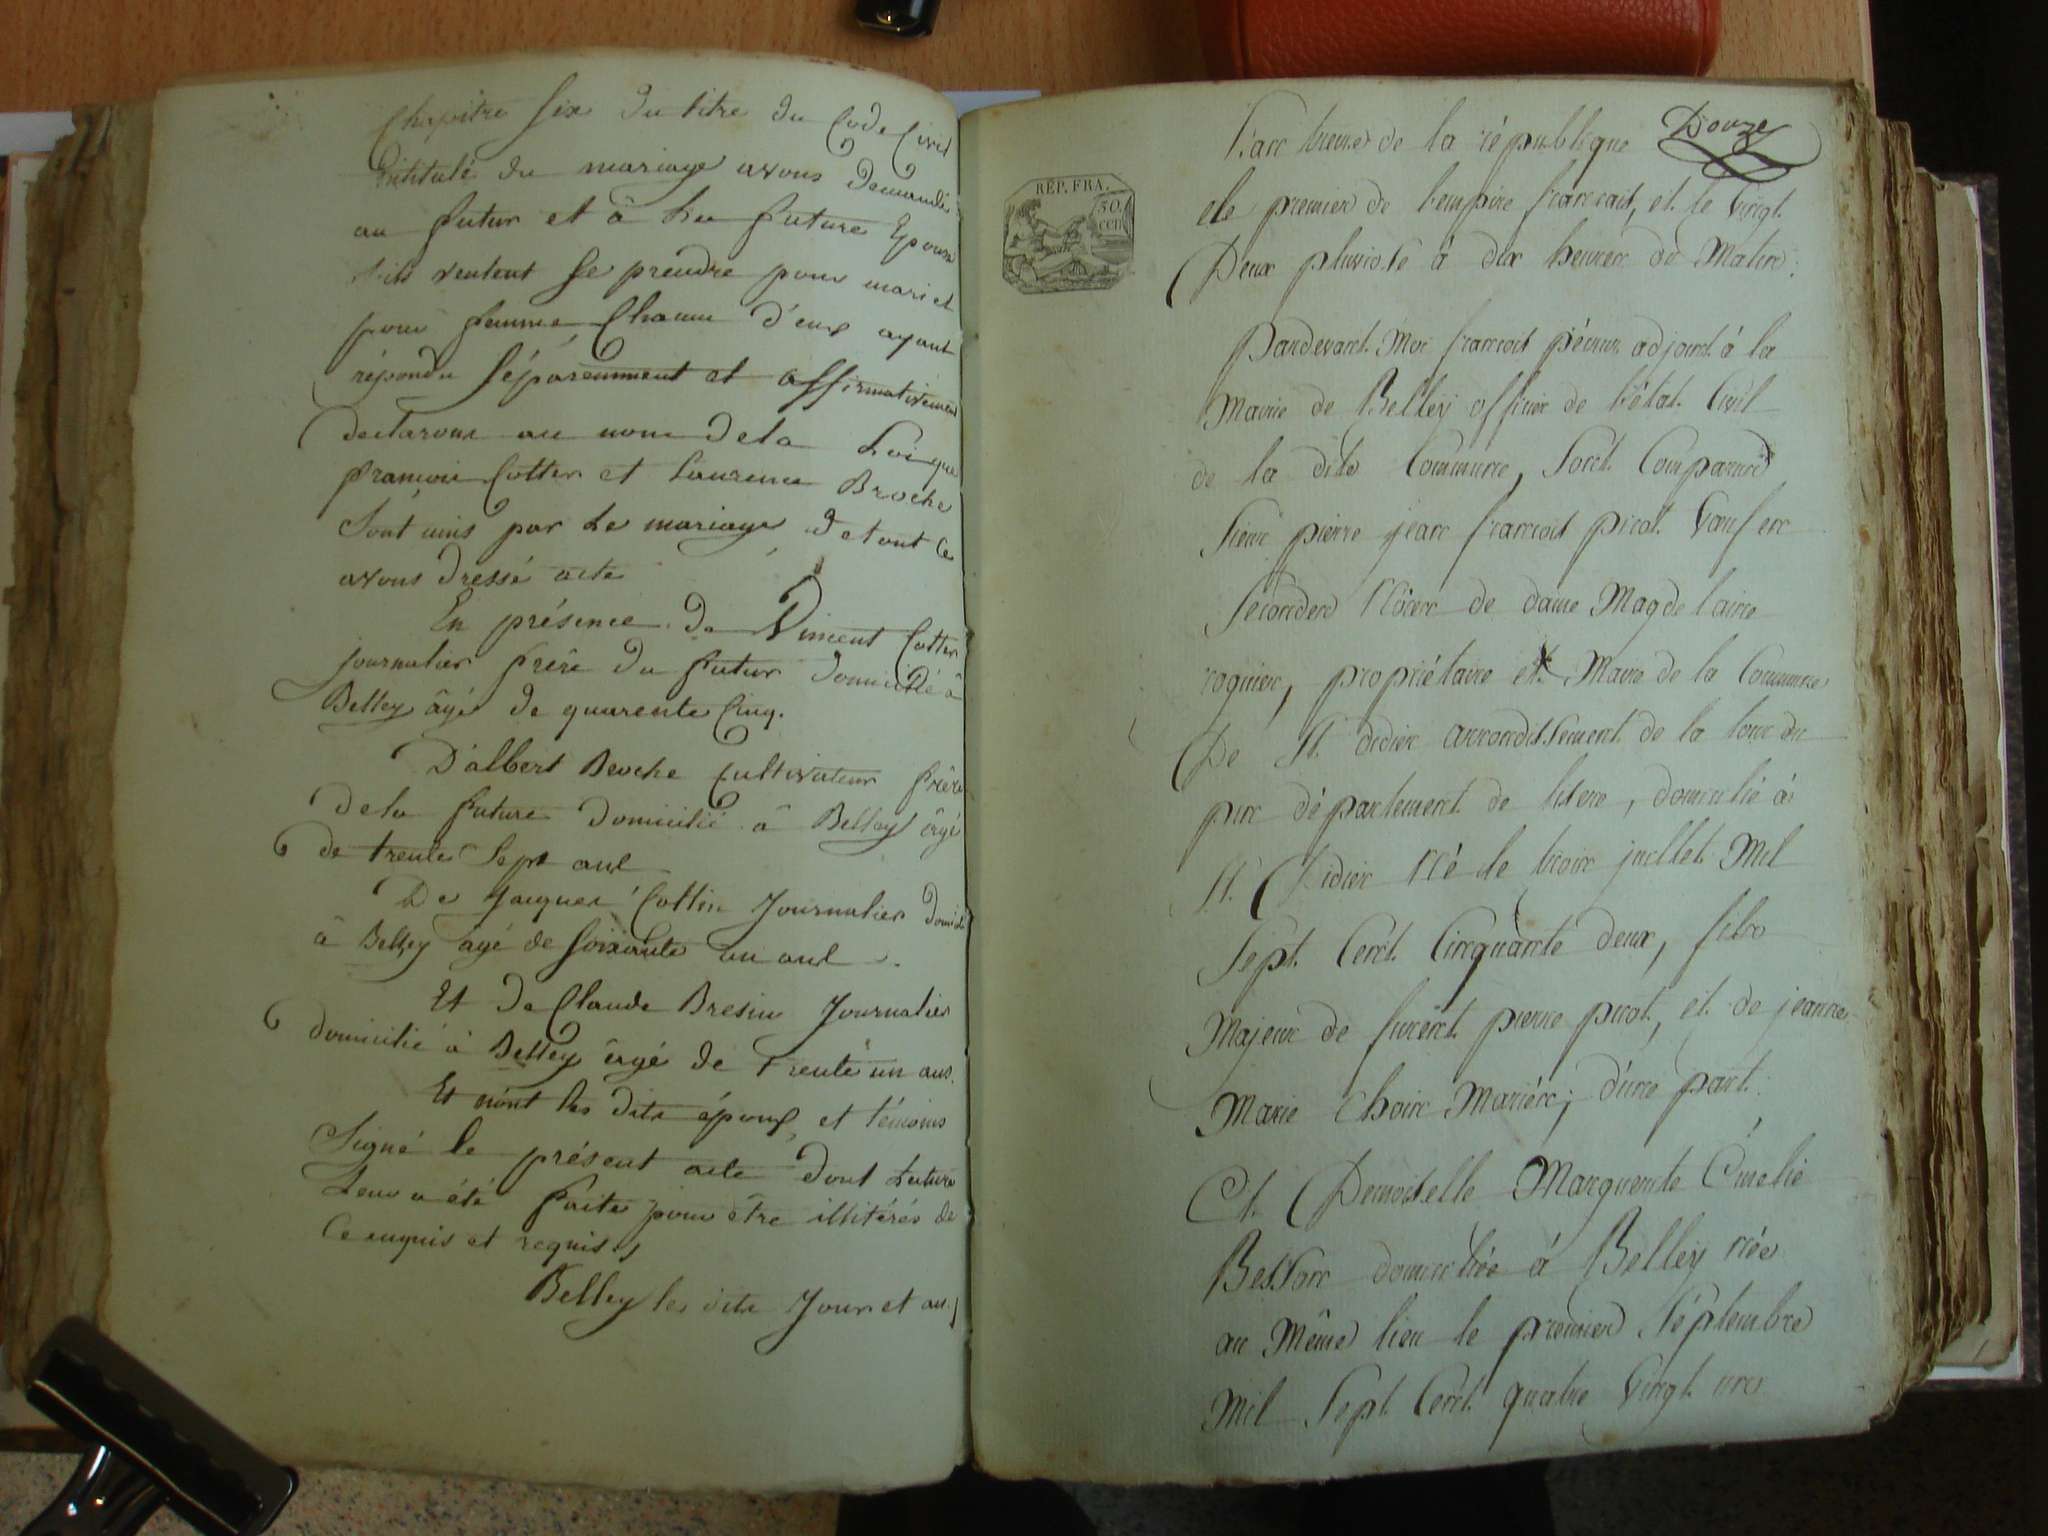 Chapitre six du titre du Code Civil
intitulé du mariage avons demandés
au futur et à la future Epouse
s'ils veulent se prendre pour mari et
pour femme, Chacun d'eux ayant
répondu séparemment et affirmativement
declarons au nom de la Loi que
françois Cotter et Laurence Broche
Sont unis par le mariage de tout ce
avons dressé acte
En présence de Vincent Cotter
journalier frère du futur domicilié à
Belley âgé de quarente cinq.
D'albert Broche Cultivateur frère
de la future domicilié à Belley âgé
de trente sept ans
De Jacques Cottin Journalier domicilié
à Belley agé de soixante un ans
Et de Claude Bresin Journalier
domicilié à Belley âgé de trente un ans.
Et n'ont les dits époux et témoins
Signé le présent acte dont lecture
leur a été faite pour être illitérés de
ce enquis et requis,
Belley les dits Jour et an
Douze
RÉP. FRA.
50.
cen
L'an treize de la république
ele premier de l'empire francais, et le vingt
Deux pluviose à dix heures du Matin.
Pardevant Moi francois adjoint à la
Mairie de Belley officier de l'état Civil
de la dite Commune, Sont Comparus
Sieur pierre jean francois picot Veuf en
Secondes Nôces de dame Magdelaine
roquier, propriétaire et Maire de la Commune
De St. didier arrondissement de la tour du
pin département de lisere, domicilié à
St. Didier Né le trois juillet Mil
Sept Cent Cinquante deux, fils
Majeur de furent pierre picot, et de jeanne
Marie Choin Mariés; d'une part.
Et Demoiselle Marguerite Emelie
Besson domiciliée à Belley née
au Même lieu le premier Séptembre
Mil Sept Cent quatre Vingt un